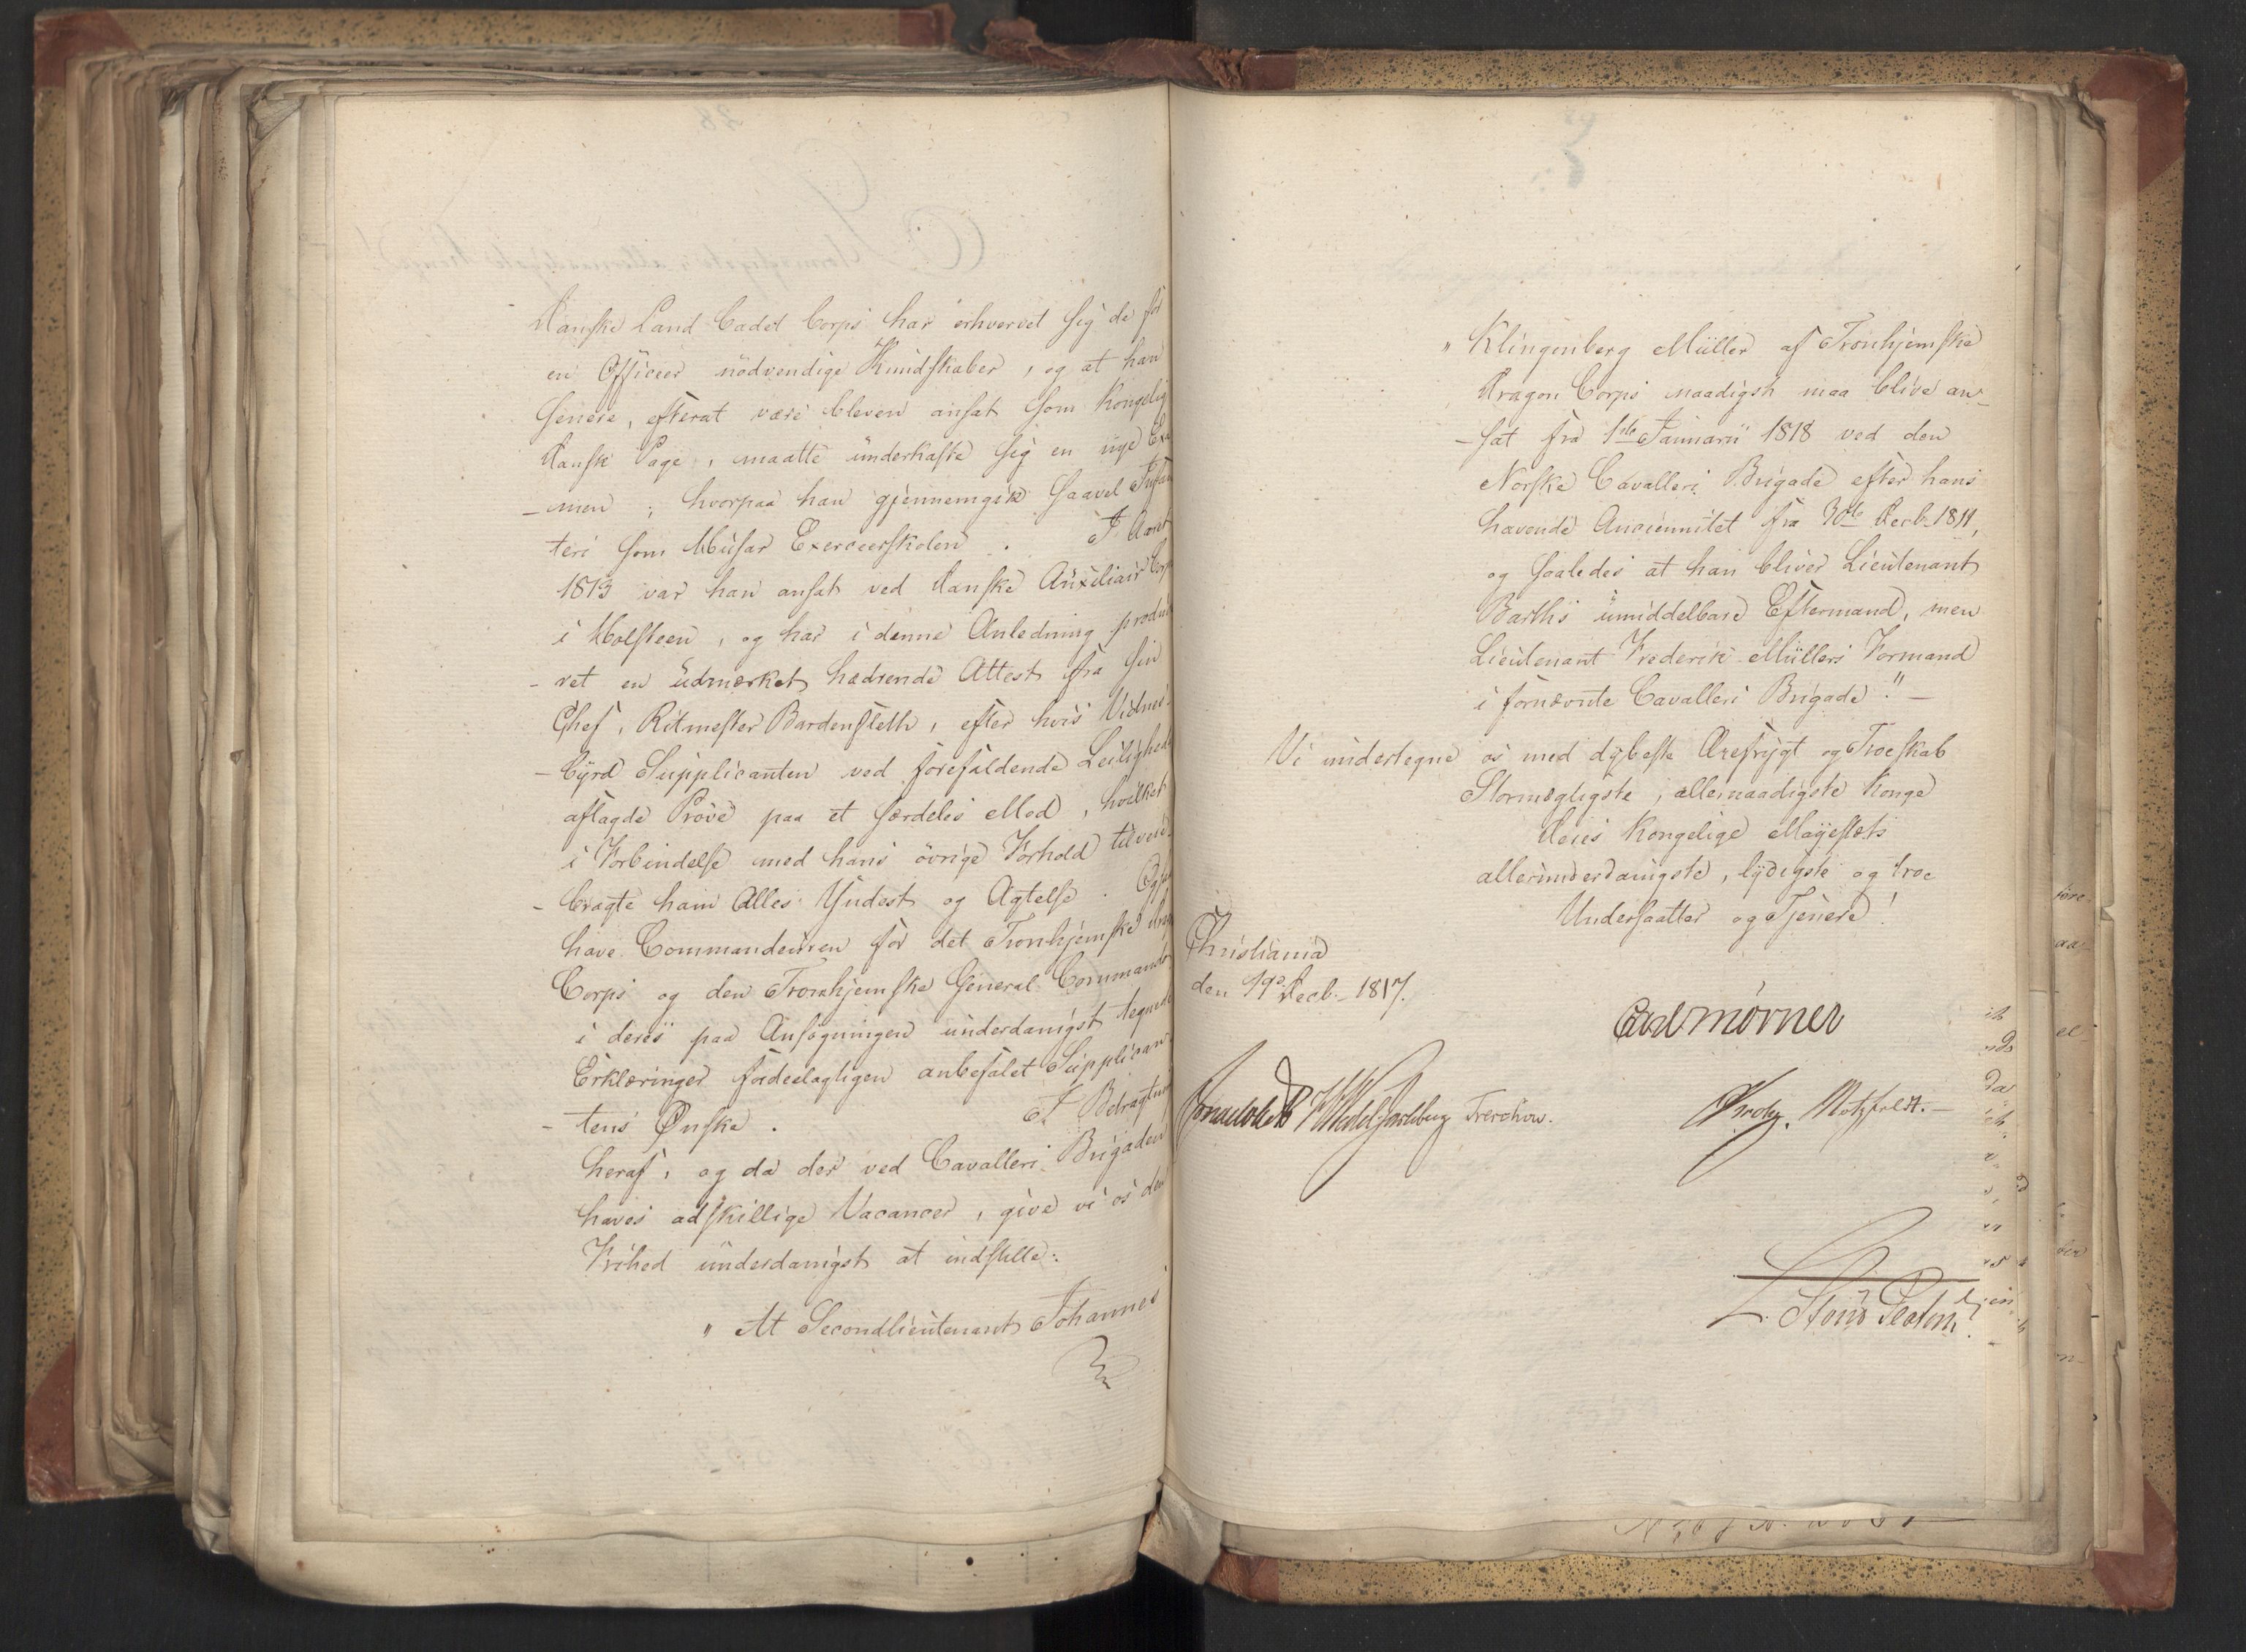 Danske Land Cadet Corps har erhvervet sig de for
en Officeer nödvendige Kundskaber, og at han
senere, efterat være bleven ansat som Kongelig
Dansk Page, maatte underkaste sig en nye Exa
-men; hvorpaa han gjennemgik saavel Infan
teri som Husar Exerceerskolen. I Aaret
1813 var han ansat ved danske Auxiliair Corps
i Holsteen, og har i denne Anledning produ
-ret en udmærket hædrende Attest fra sin
Chef, Ritmester Bardenfleth, efter hvis Vidnes-
-byrd Supplicanten ved forefaldende Leilighed
aflagde Pröve paa et særdeles Mod, hvilket
i Forbindelse med hans övrige Forhold tilveie-
-bragte ham Alles Yndest og Agtelse. Ogsaa
have Commandeuren for det Tronhjemske
Corps og den Tronhjemske General Commando
i deres paa Ansögningen underdanigst tegnede
Erklæringer fordeelagtigen anbefalet Supplican-
-tens Ønske. I Betragtning
heraf, og da der ved Cavalleri-Brigaden
haves adskillige Vacancer, give vi os den
Frihed underdanigst at indstille:
" At Secondlieutenant Johannes
" Klingenberg Müller af Tronhjemske
Dragon Corps naadigst maa blive an-
-sat fra 1ste Januarii 1818 ved den
Norske Cavalleri-Brigade efter hans
havende Anciennitet fra 30te Decb. 1811,
og saaledes at han bliver Lieutenant
Barths umiddelbare Eftermand, men
Lieutenant Frederik Müllers Formand
i fornævnte Cavalleri Brigade." -
Vi undertegne os med dybeste Ærefrygt og Troeskab
Stormægtigste, allernaadigste Konge
Deres Kongelige Mayestæts
allerunderdanigste, lydigste og troe
Undersaatter og Tjenere!
Christiania
den 19de Decb. 1817.
Carl Mörner
Sommerhielm HWedel Jarlsberg Treschow. Krog. Motzfeldt. -
L. Stoud Platou